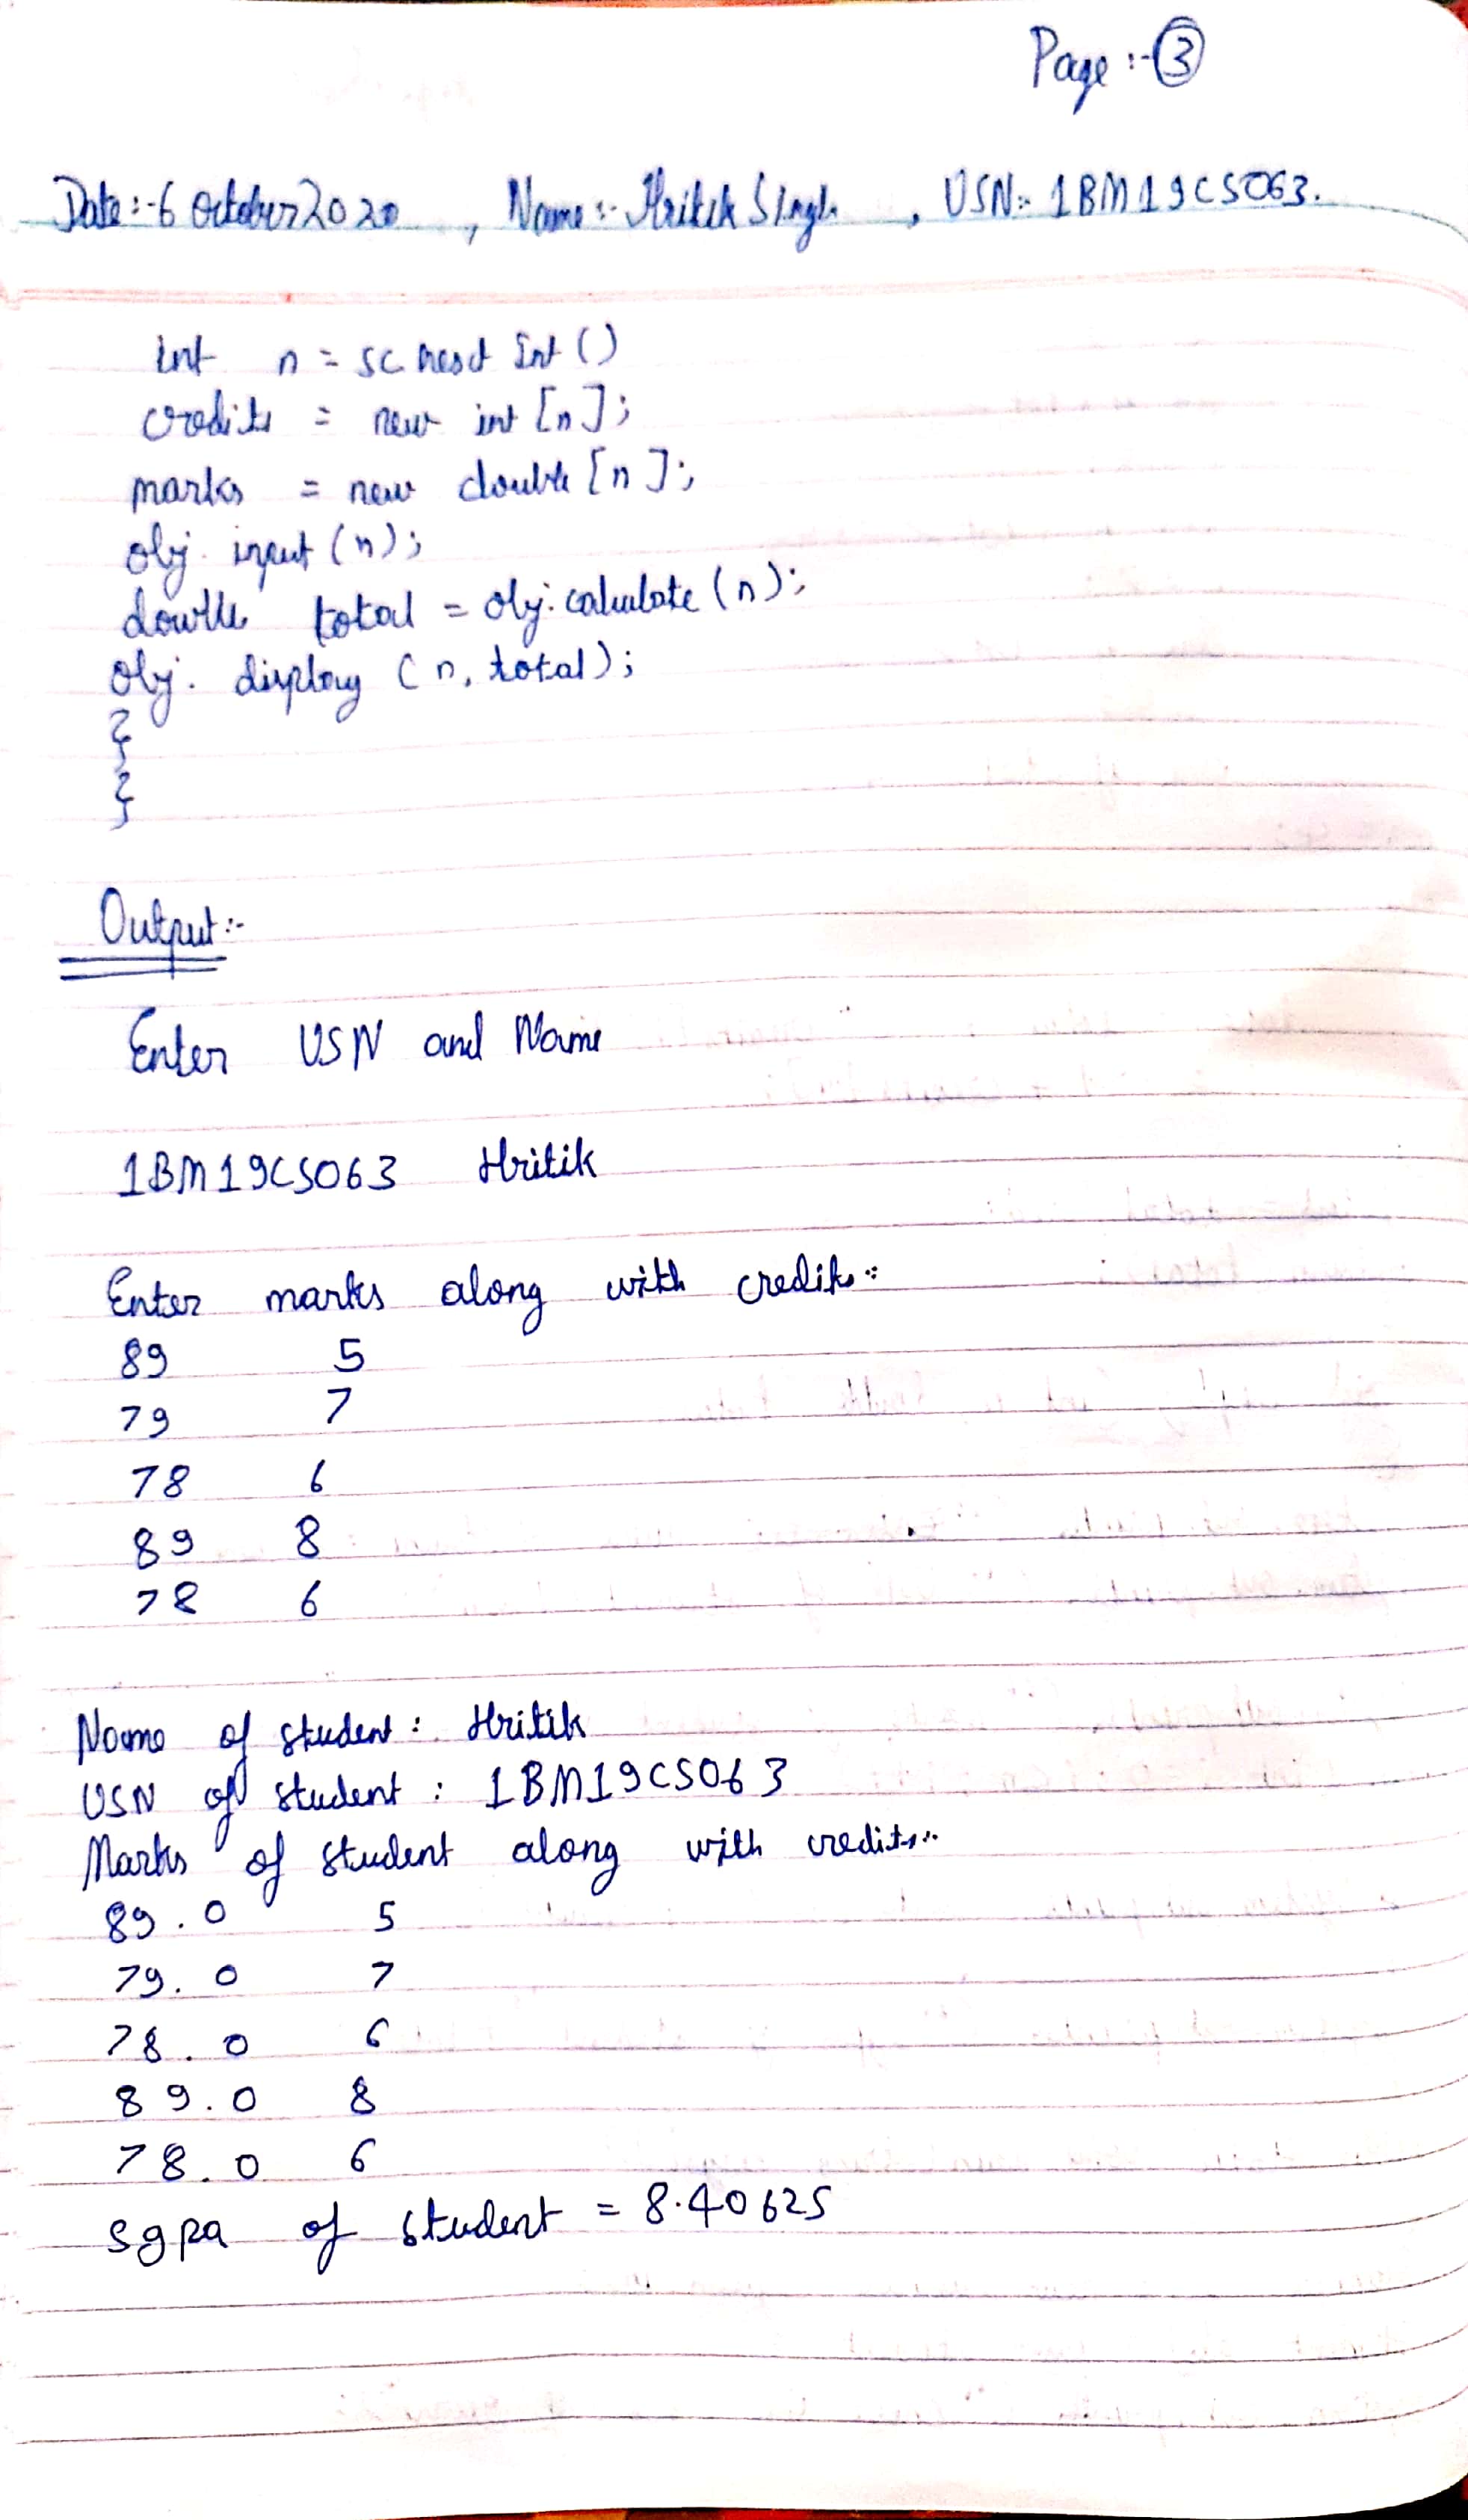 Page :- 3
Date :- 6 October 2020 , Name :- Hritik Singh , USN :- 1BM19CS063.
int n = sc next Int ()
credits = new int [n];
marks = new double [n];
obj. input (n);
double total = obj. calculate (n);
obj. display (n, total);
}
}
Output :-
Enter USN and Name
1BM19CS063 Hritik
Enter marks along with credits :
89 5
79 7
78 6
89 8
78 6
Name of student : Hritik
USN of student : 1BM19CS063
Marks of student along with credits :
89.0 5
79.0 7
78.0 6
89.0 8
78.0 6
sgpa of student = 8.40625